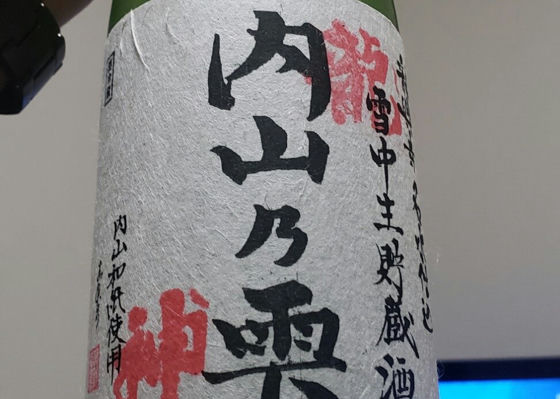 雪中生貯蔵酒
龍
内山乃雫
神
内山和紙使用